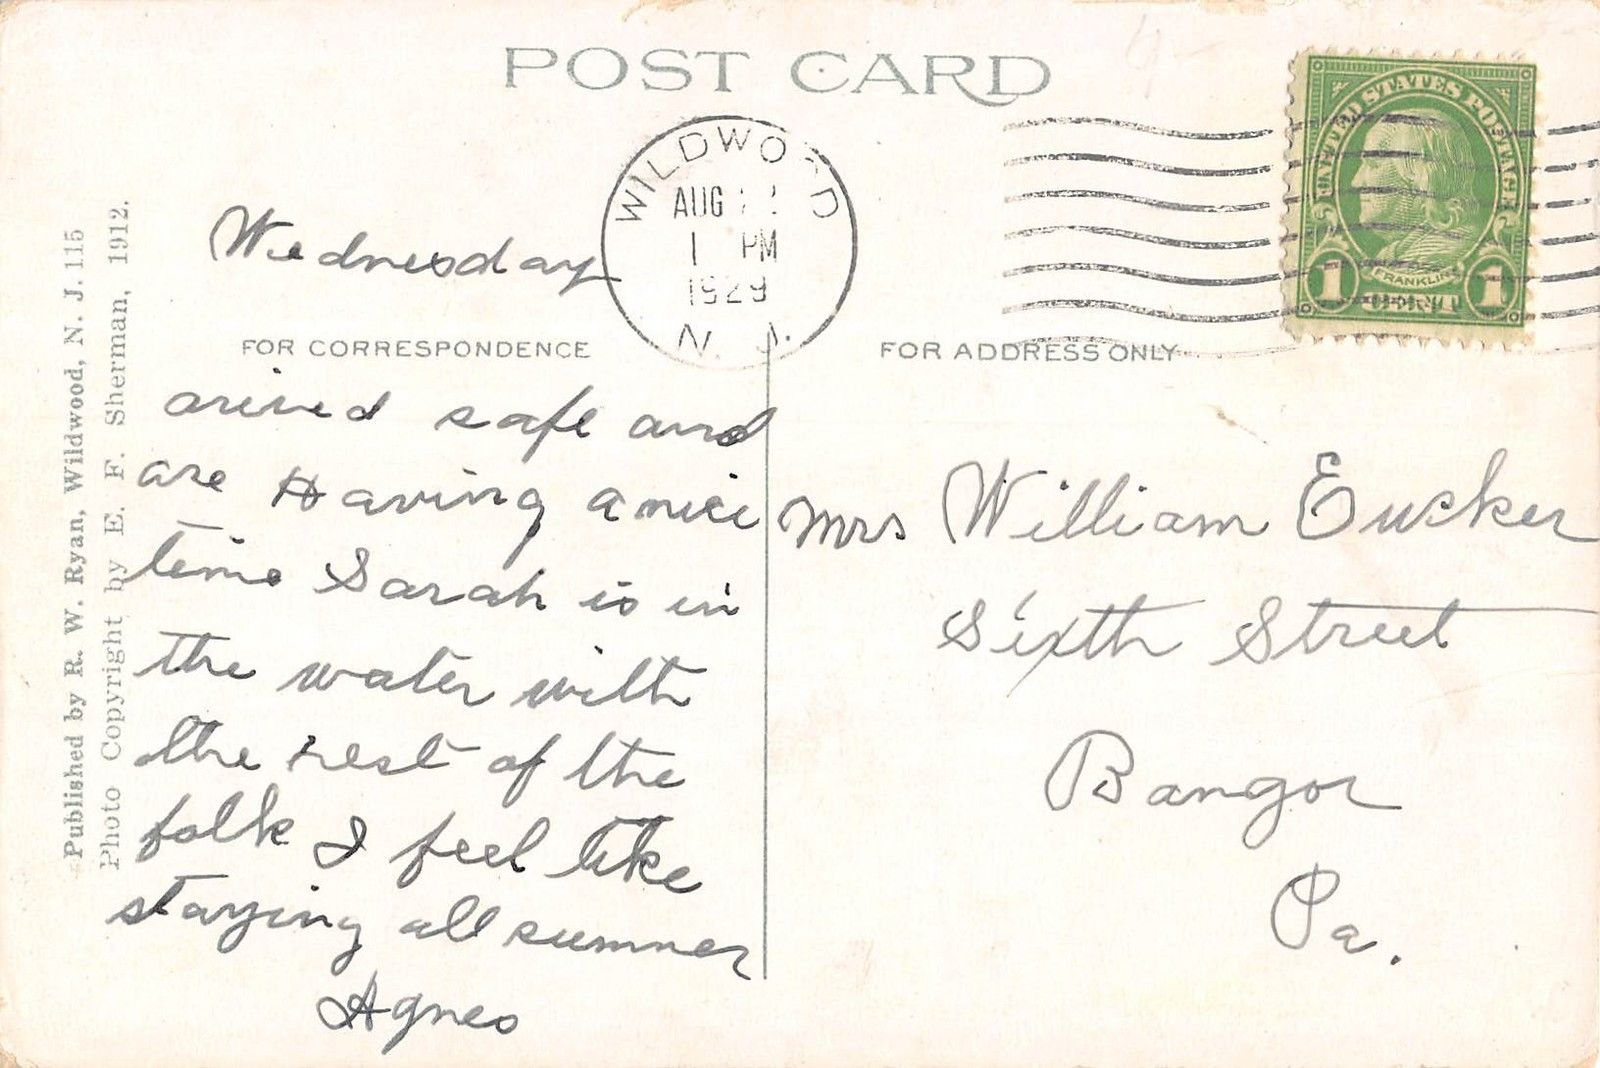 POST CARD
WILDWOOD
AUG
1 PM
1929
N. J.
UNITED STATES POSTAGE
FRANKLIN
1 CENT 1
Published by R. W. Ryan, Wildwood, N. J. 115
Photo Copyright by E. F. Sherman, 1912.
Wednesday
FOR CORRESPONDENCE
arived safe and
are Having a nice
time Sarah is in
the water with
the rest of the
folk I feel like
staying all summer
Agnes
FOR ADDRESS ONLY
Mrs William Eucker
Sixth Street
Bangor
Pa.